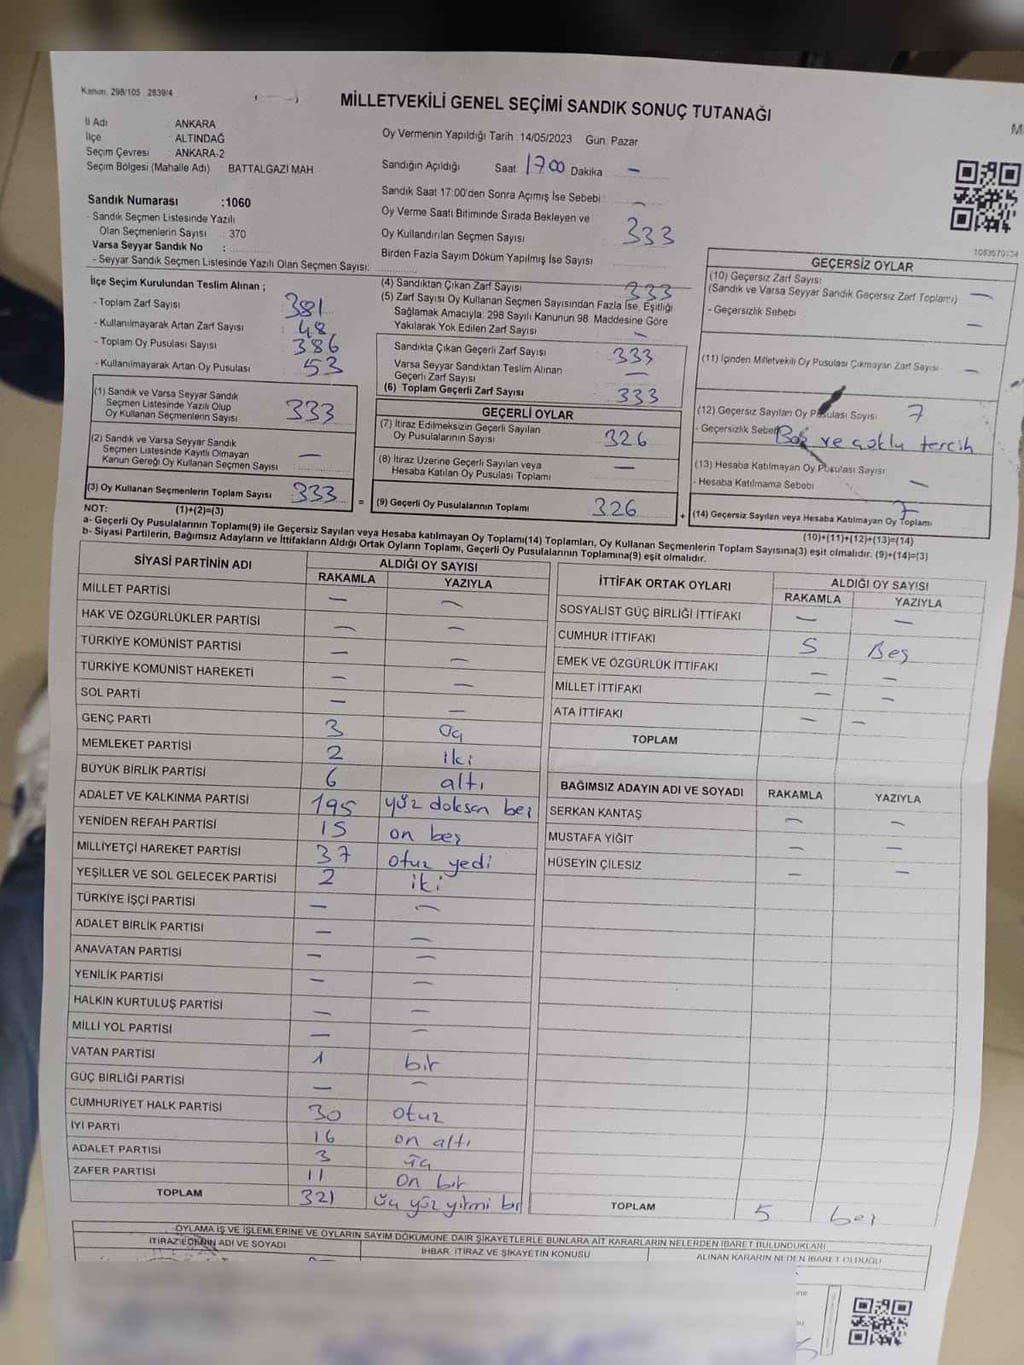 Kanun. 298/105 2839/4
MİLLETVEKİLİ GENEL SEÇİMİ SANDIK SONUÇ TUTANAĞI
İl Adı ANKARA
İlçe : ALTINDAĞ
Seçim Çevresi ANKARA-2
Seçim Bölgesi (Mahalle Adı) BATTALGAZI MAH
Oy Vermenin Yapıldığı Tarih : 14/05/2023 Gün: Pazar
Sandığın Açıldığı Saat: 1700 Dakika –
Sandık Saat 17:00'den Sonra Açımış İse Sebebi : –
Oy Verme Saati Bitiminde Sırada Bekleyen ve
Oy Kullandırılan Seçmen Sayısı 333
Birden Fazla Sayım Döküm Yapılmış İse Sayısı
Sandık Numarası :1060
- Sandık Seçmen Listesinde Yazılı
Olan Seçmenlerin Sayısı : 370
Varsa Seyyar Sandık No :
- Seyyar Sandık Seçmen Listesinde Yazılı Olan Seçmen Sayısı:
1083670134
İlçe Seçim Kurulundan Teslim Alınan ;
- Toplam Zarf Sayısı 381
- Kullanılmayarak Artan Zarf Sayısı 48
- Toplam Oy Pusulası Sayısı 386
- Kullanılmayarak Artan Oy Pusulası 53
(1) Sandık ve Varsa Seyyar Sandık
Seçmen Listesinde Yazılı Olup
Oy Kullanan Seçmenlerin Sayısı 333
(2) Sandık ve Varsa Seyyar Sandık
Seçmen Listesinde Kayıtlı Olmayan
Kanun Gereği Oy Kullanan Seçmen Sayısı –
(3) Oy Kullanan Seçmenlerin Toplam Sayısı 333 =
(4) Sandıktan Çıkan Zarf Sayısı 333
(5) Zarf Sayısı Oy Kullanan Seçmen Sayısından Fazla İse, Eşitliği
Sağlamak Amacıyla; 298 Sayılı Kanunun 98. Maddesine Göre
Yakılarak Yok Edilen Zarf Sayısı –
Sandıkta Çıkan Geçerli Zarf Sayısı 333
Varsa Seyyar Sandıktan Teslim Alınan
Geçerli Zarf Sayısı –
(6) Toplam Geçerli Zarf Sayısı 333
GEÇERLİ OYLAR
(7) İtiraz Edilmeksizin Geçerli Sayılan
Oy Pusulalarının Sayısı 326
(8) İtiraz Üzerine Geçerli Sayılan veya
Hesaba Katılan Oy Pusulası Toplamı –
(9) Geçerli Oy Pusulalarının Toplamı 326 +
GEÇERSİZ OYLAR
(10) Geçersiz Zarf Sayısı:
(Sandık ve Varsa Seyyar Sandık Geçersiz Zarf Toplamı) –
- Geçersizlik Sebebi –
(11) İçinden Milletvekili Oy Pusulası Çıkmayan Zarf Sayısı –
(12) Geçersiz Sayılan Oy Pusulası Sayısı: 7
- Geçersizlik Sebebi ve çoklu tercih
(13) Hesaba Katılmayan Oy Pusulası Sayısı
- Hesaba Katılmama Sebebi –
(14) Geçersiz Sayılan veya Hesaba Katılmayan Oy Toplamı 7
NOT: (1)+(2)=(3)
(10)+(11)+(12)+(13)=(14)
a- Geçerli Oy Pusulalarının Toplamı(9) ile Geçersiz Sayılan veya Hesaba katılmayan Oy Toplamı(14) Toplamları, Oy Kullanan Seçmenlerin Toplam Sayısına(3) eşit olmalıdır. (9)+(14)=(3)
b- Siyasi Partilerin, Bağımsız Adayların ve İttifakların Aldığı Ortak Oyların Toplamı, Geçerli Oy Pusulalarının Toplamına(9) eşit olmalıdır.
SİYASİ PARTİNİN ADI ALDIĞI OY SAYISI
RAKAMLA YAZIYLA
MİLLET PARTİSİ – –
HAK VE ÖZGÜRLÜKLER PARTİSİ – –
TÜRKİYE KOMÜNİST PARTİSİ – –
TÜRKİYE KOMÜNİST HAREKETİ – –
SOL PARTİ – –
GENÇ PARTİ 3 üç
MEMLEKET PARTİSİ 2 iki
BÜYÜK BİRLİK PARTİSİ 6 altı
ADALET VE KALKINMA PARTİSİ 195 yüz doksan beş
YENİDEN REFAH PARTİSİ 15 on beş
MİLLİYETÇİ HAREKET PARTİSİ 37 otuz yedi
YEŞİLLER VE SOL GELECEK PARTİSİ 2 iki
TÜRKİYE İŞÇİ PARTİSİ – –
ADALET BİRLİK PARTİSİ – –
ANAVATAN PARTİSİ – –
YENİLİK PARTİSİ – –
HALKIN KURTULUŞ PARTİSİ – –
MİLLİ YOL PARTİSİ – –
VATAN PARTİSİ 1 bir
GÜÇ BİRLİĞİ PARTİSİ – –
CUMHURİYET HALK PARTİSİ 30 otuz
İYİ PARTİ 16 on altı
ADALET PARTİSİ 3 üç
ZAFER PARTİSİ 11 on bir
TOPLAM 321 üç yüz yirmi bir
İTTİFAK ORTAK OYLARI ALDIĞI OY SAYISI
RAKAMLA YAZIYLA
SOSYALİST GÜÇ BİRLİĞİ İTTİFAKI – –
CUMHUR İTTİFAKI 5 Beş
EMEK VE ÖZGÜRLÜK İTTİFAKI – –
MİLLET İTTİFAKI – –
ATA İTTİFAKI – –
TOPLAM
BAĞIMSIZ ADAYIN ADI VE SOYADI RAKAMLA YAZIYLA
SERKAN KANTAŞ – –
MUSTAFA YİĞİT – –
HÜSEYİN ÇİLESİZ – –
TOPLAM 5 beş
OYLAMA İŞ VE İŞLEMLERİNE VE OYLARIN SAYIM DÖKÜMÜNE DAİR ŞİKAYETLERLE BUNLARA AİT KARARLARIN NELERDEN İBARET BULUNDUKLARI
İTİRAZ EDENİN ADI VE SOYADI İHBAR, İTİRAZ VE ŞİKAYETİN KONUSU ALINAN KARARIN NEDEN İBARET OLDUĞU